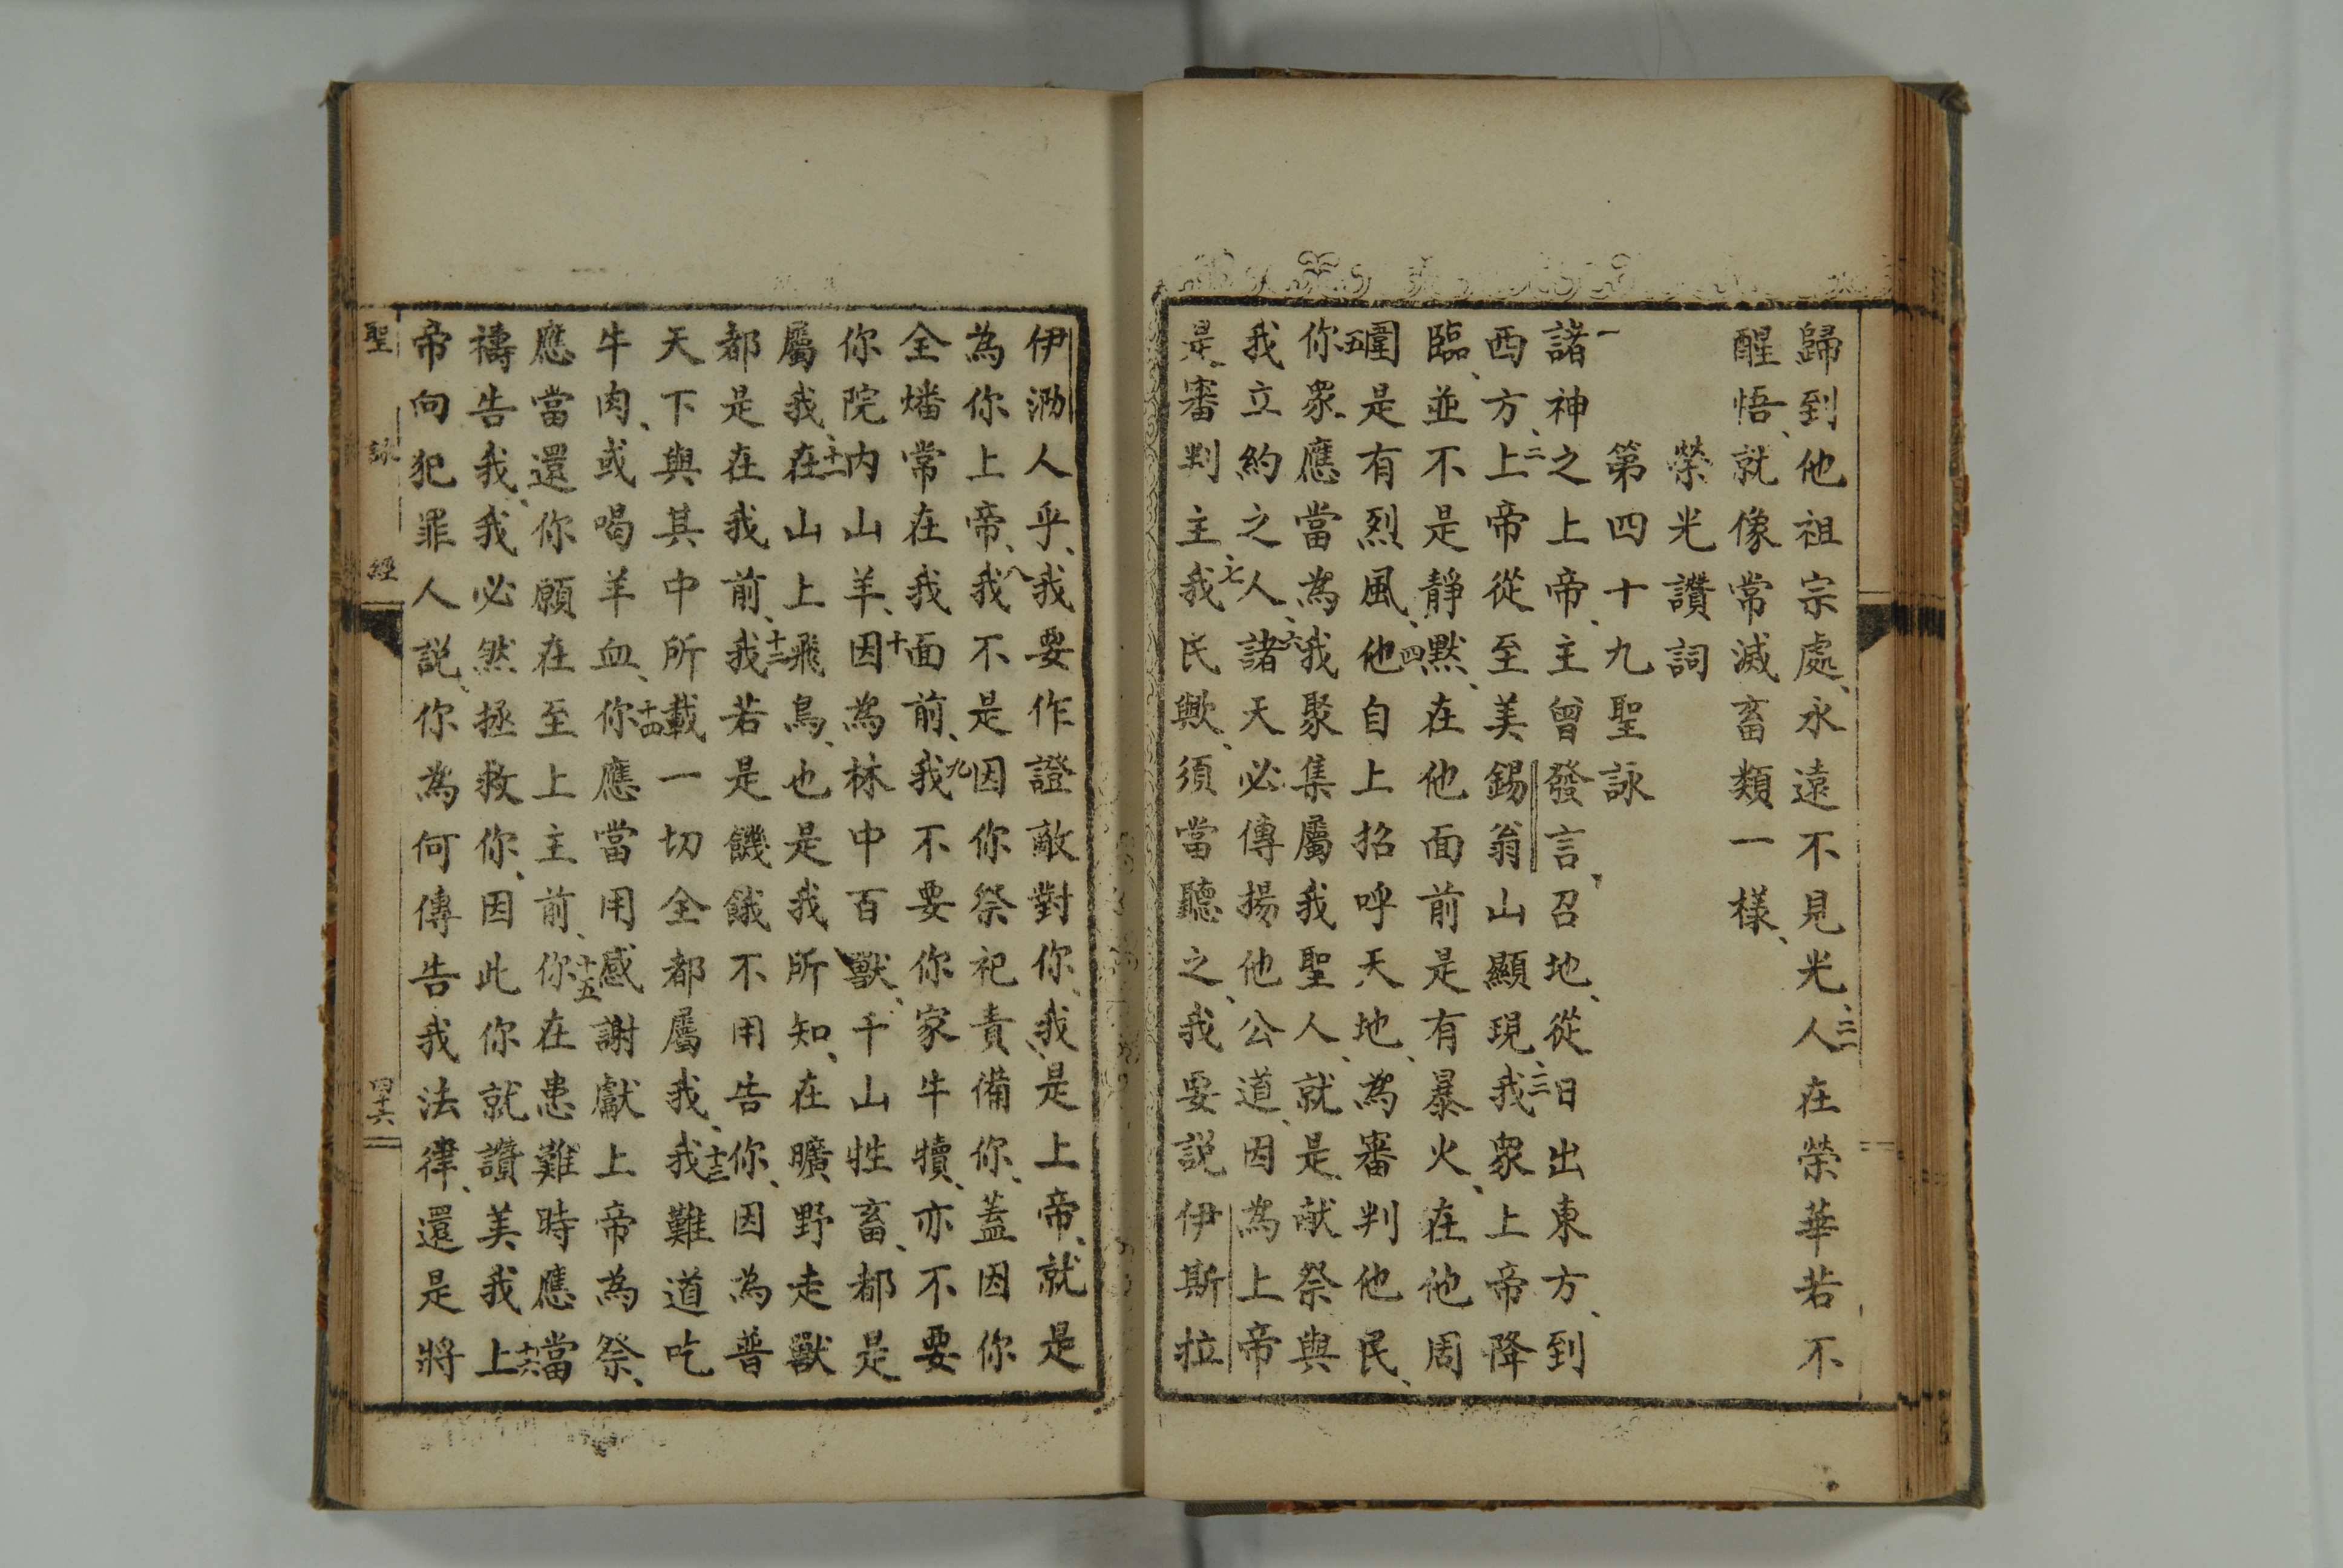 歸到他祖宗處、永遠不見光、三一人在榮華若不
醒悟、就像常滅畜類一樣、
榮光讚詞
第四十九聖詠
一諸神之上帝、主曾發言、召地、從日出東方、到
西方、二上帝從至美錫翁山顯現、三我衆上帝降
臨、並不是靜默、在他面前是有暴火、在他周
圍是有烈風、四他自上招呼天地、為審判他民、
五你衆、應當為我聚集屬我聖人、就是、献祭與
我立約之人、六諸天必傳揚他公道、因為上帝
是、審判主、七我民歟、須當聽之、我要説伊斯拉
伊泐人乎、我要作證敵對你、我是上帝、就是
為你上帝、八我不是因你祭祀責備你、蓋因你
全燔常在我面前、九我不要你家牛犢、亦不要
你院内山羊、十因為林中百獸、千山牲畜、都是
屬我、十一在山上飛鳥、也是我所知、在曠野走獸
都是在我前、十二我若是饑餓不用告你、因為普
天下與其中所載一切全都屬我、十三我難道吃
牛肉、或喝羊血、十四你應當用感謝獻上帝為祭、
應當還你願在至上主前、十五你在患難時應當
禱告我、我必然拯救你、因此你就讚美我、十六上
帝向犯罪人説、你為何傳告我法律、還是將
聖詠經
四十六